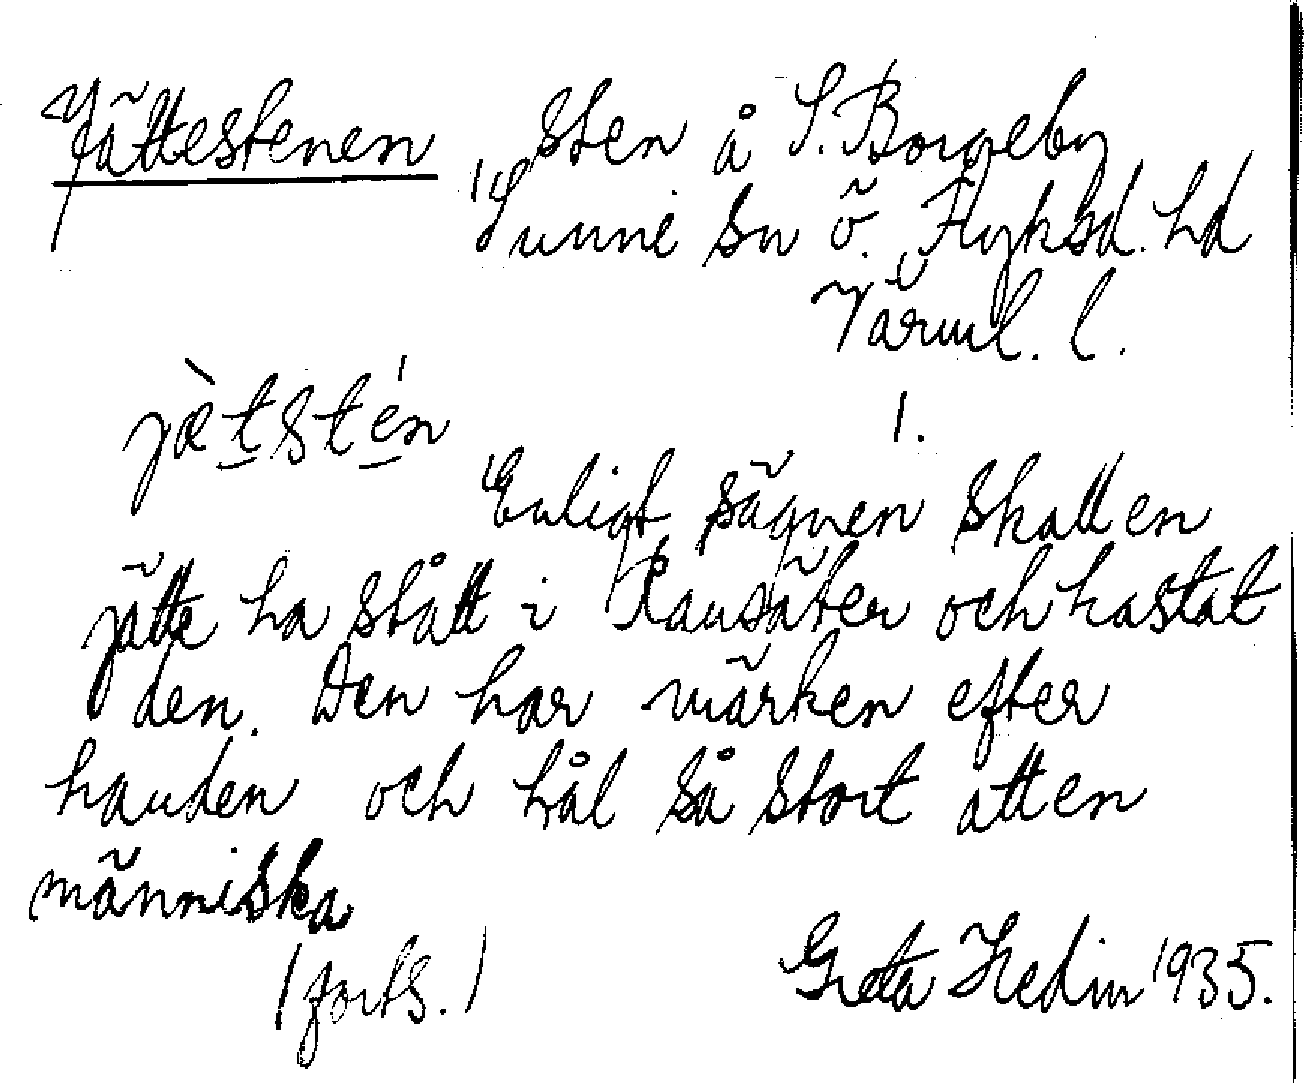 Jättestenen sten å S. Borgeby
Sunne sn Ö. Fryksd. hd
Värml. l.
jæ̀tstén
1.
Enligt sägnen skall en
jätte ha stått i Ransäter och kastat
den. Den har märken efter
handen och hål så stort att en
människa
(forts.)
Greta Hedin 1935.